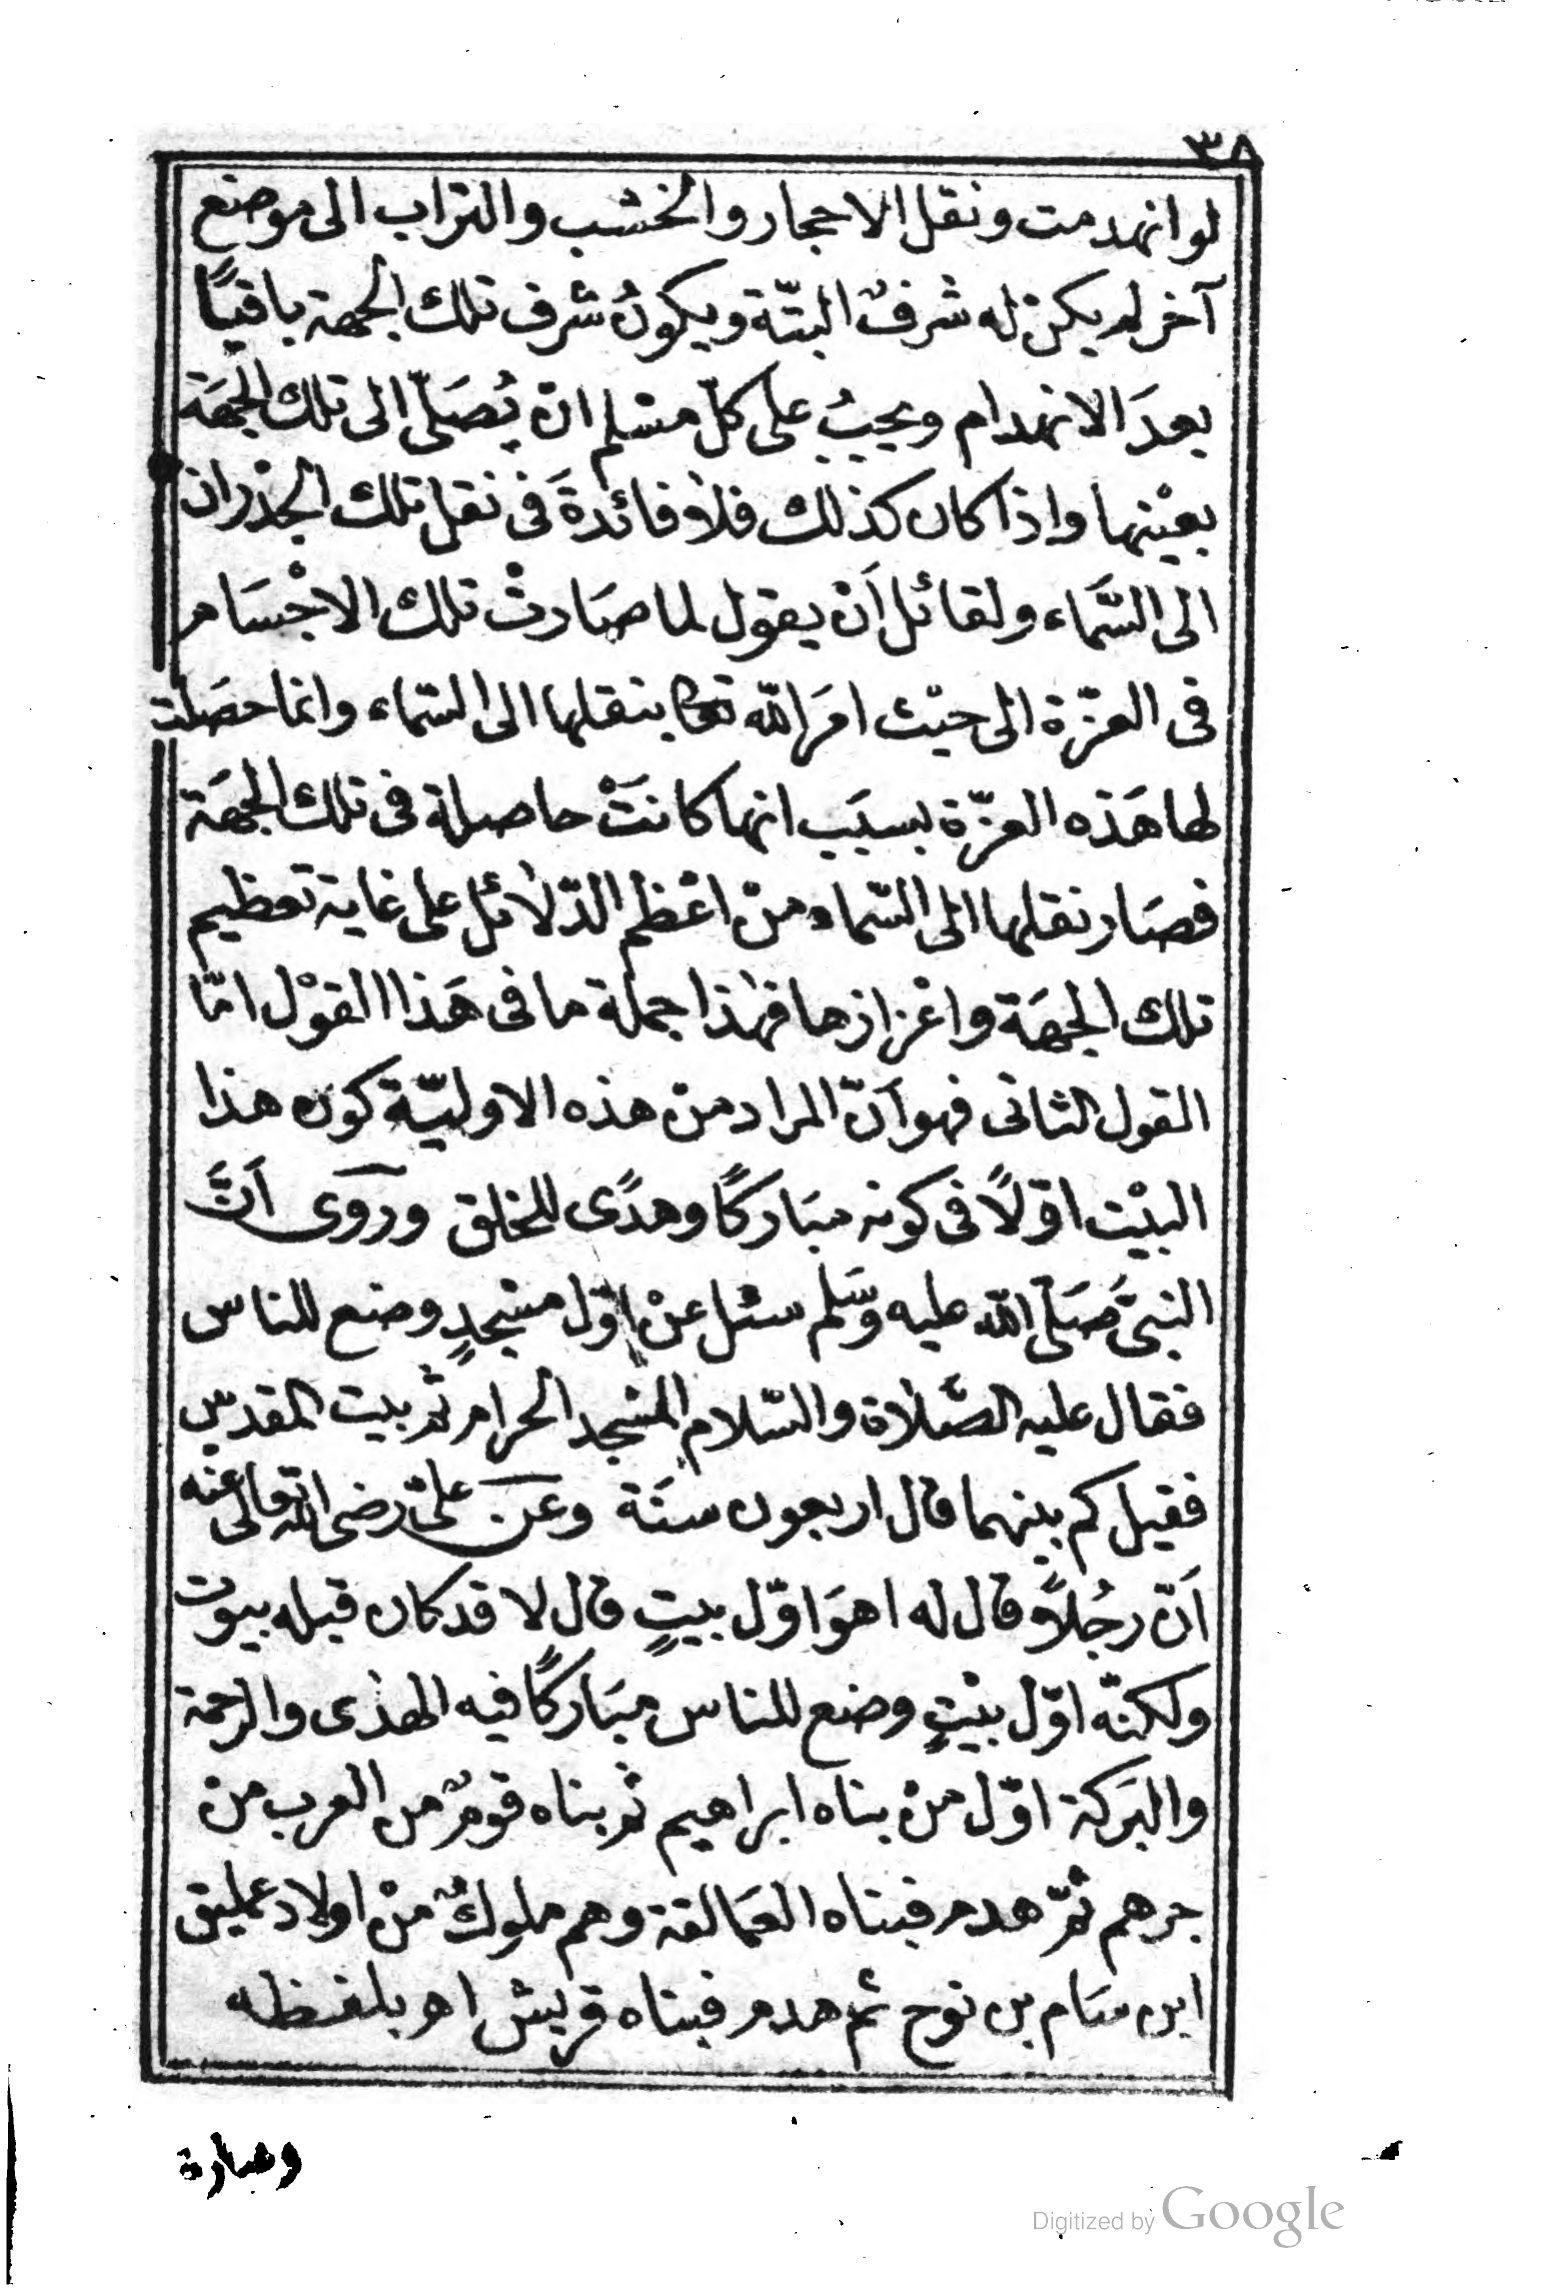 ٣٨
لو انهدمت ونقل الاحجار والخشب والتراب الى موضع
آخر لم يكن له شرفٌ البتّة ويكونُ شرف تلك الجهة باقيًا
بعدَ الانهدام ويجبُ على كلّ مسْلم ان يُصَلّى الى تلك الجهَة
بعيْنها واذا كان كذلك فلا فائدةَ فى نقل تلك الجدْران
الى السَّماء ولقائل اَنْ يقول لما صَارتْ تلك الاجْسَام
فى العزّة الى حيْث امرَ الله تعالى بنقلها الى السّماء وانما حصَلت
لها هَذه العزّة بسبَب انها كانَتْ حاصلة فى تلك الجهَة
فصَار نقلها الى السّماء منْ اعْظم الدّلائل على غاية تعظيم
تلك الجهَة واعْزازها فهٰذا جملة ما فى هَذا القوْل امّا
القول الثانى فهو اَنّ المراد منْ هذه الاوليّة كون هذا
البيْت اوّلاً فى كونه مبَاركًا وهدًى للخلق وروى اَنَّ
النبىّ صَلّى الله عليه وَسَلم سئل عنْ اوّل مسْجدٍ وضع للناس
فقال عليه الصَّلاة والسّلام المسْجد الحرام ثم بيت المقدس
فقيل كم بينهما قال اربعون سنَة وعَن علىّ رضى الله تعالى عنه
اَنّ رجُلاً قال له اهوَ اوّل بيتٍ قال لا قد كان قبله بيوت
ولكنّه اوّل بيْتٍ وضع للناس مبَاركًا فيه الهدٰى والرحمة
والبَركة اوّل منْ بناه ابراهيم ثم بناه قومٌ من العرب من
جرهم ثمّ هدم فبناه العمَالقة وهم ملوكٌ منْ اولاد عمليق
ابن سَام بن نوح ثم هدم فبناه قريش اهـ بلفظه
وعبارة
Digitized by Google